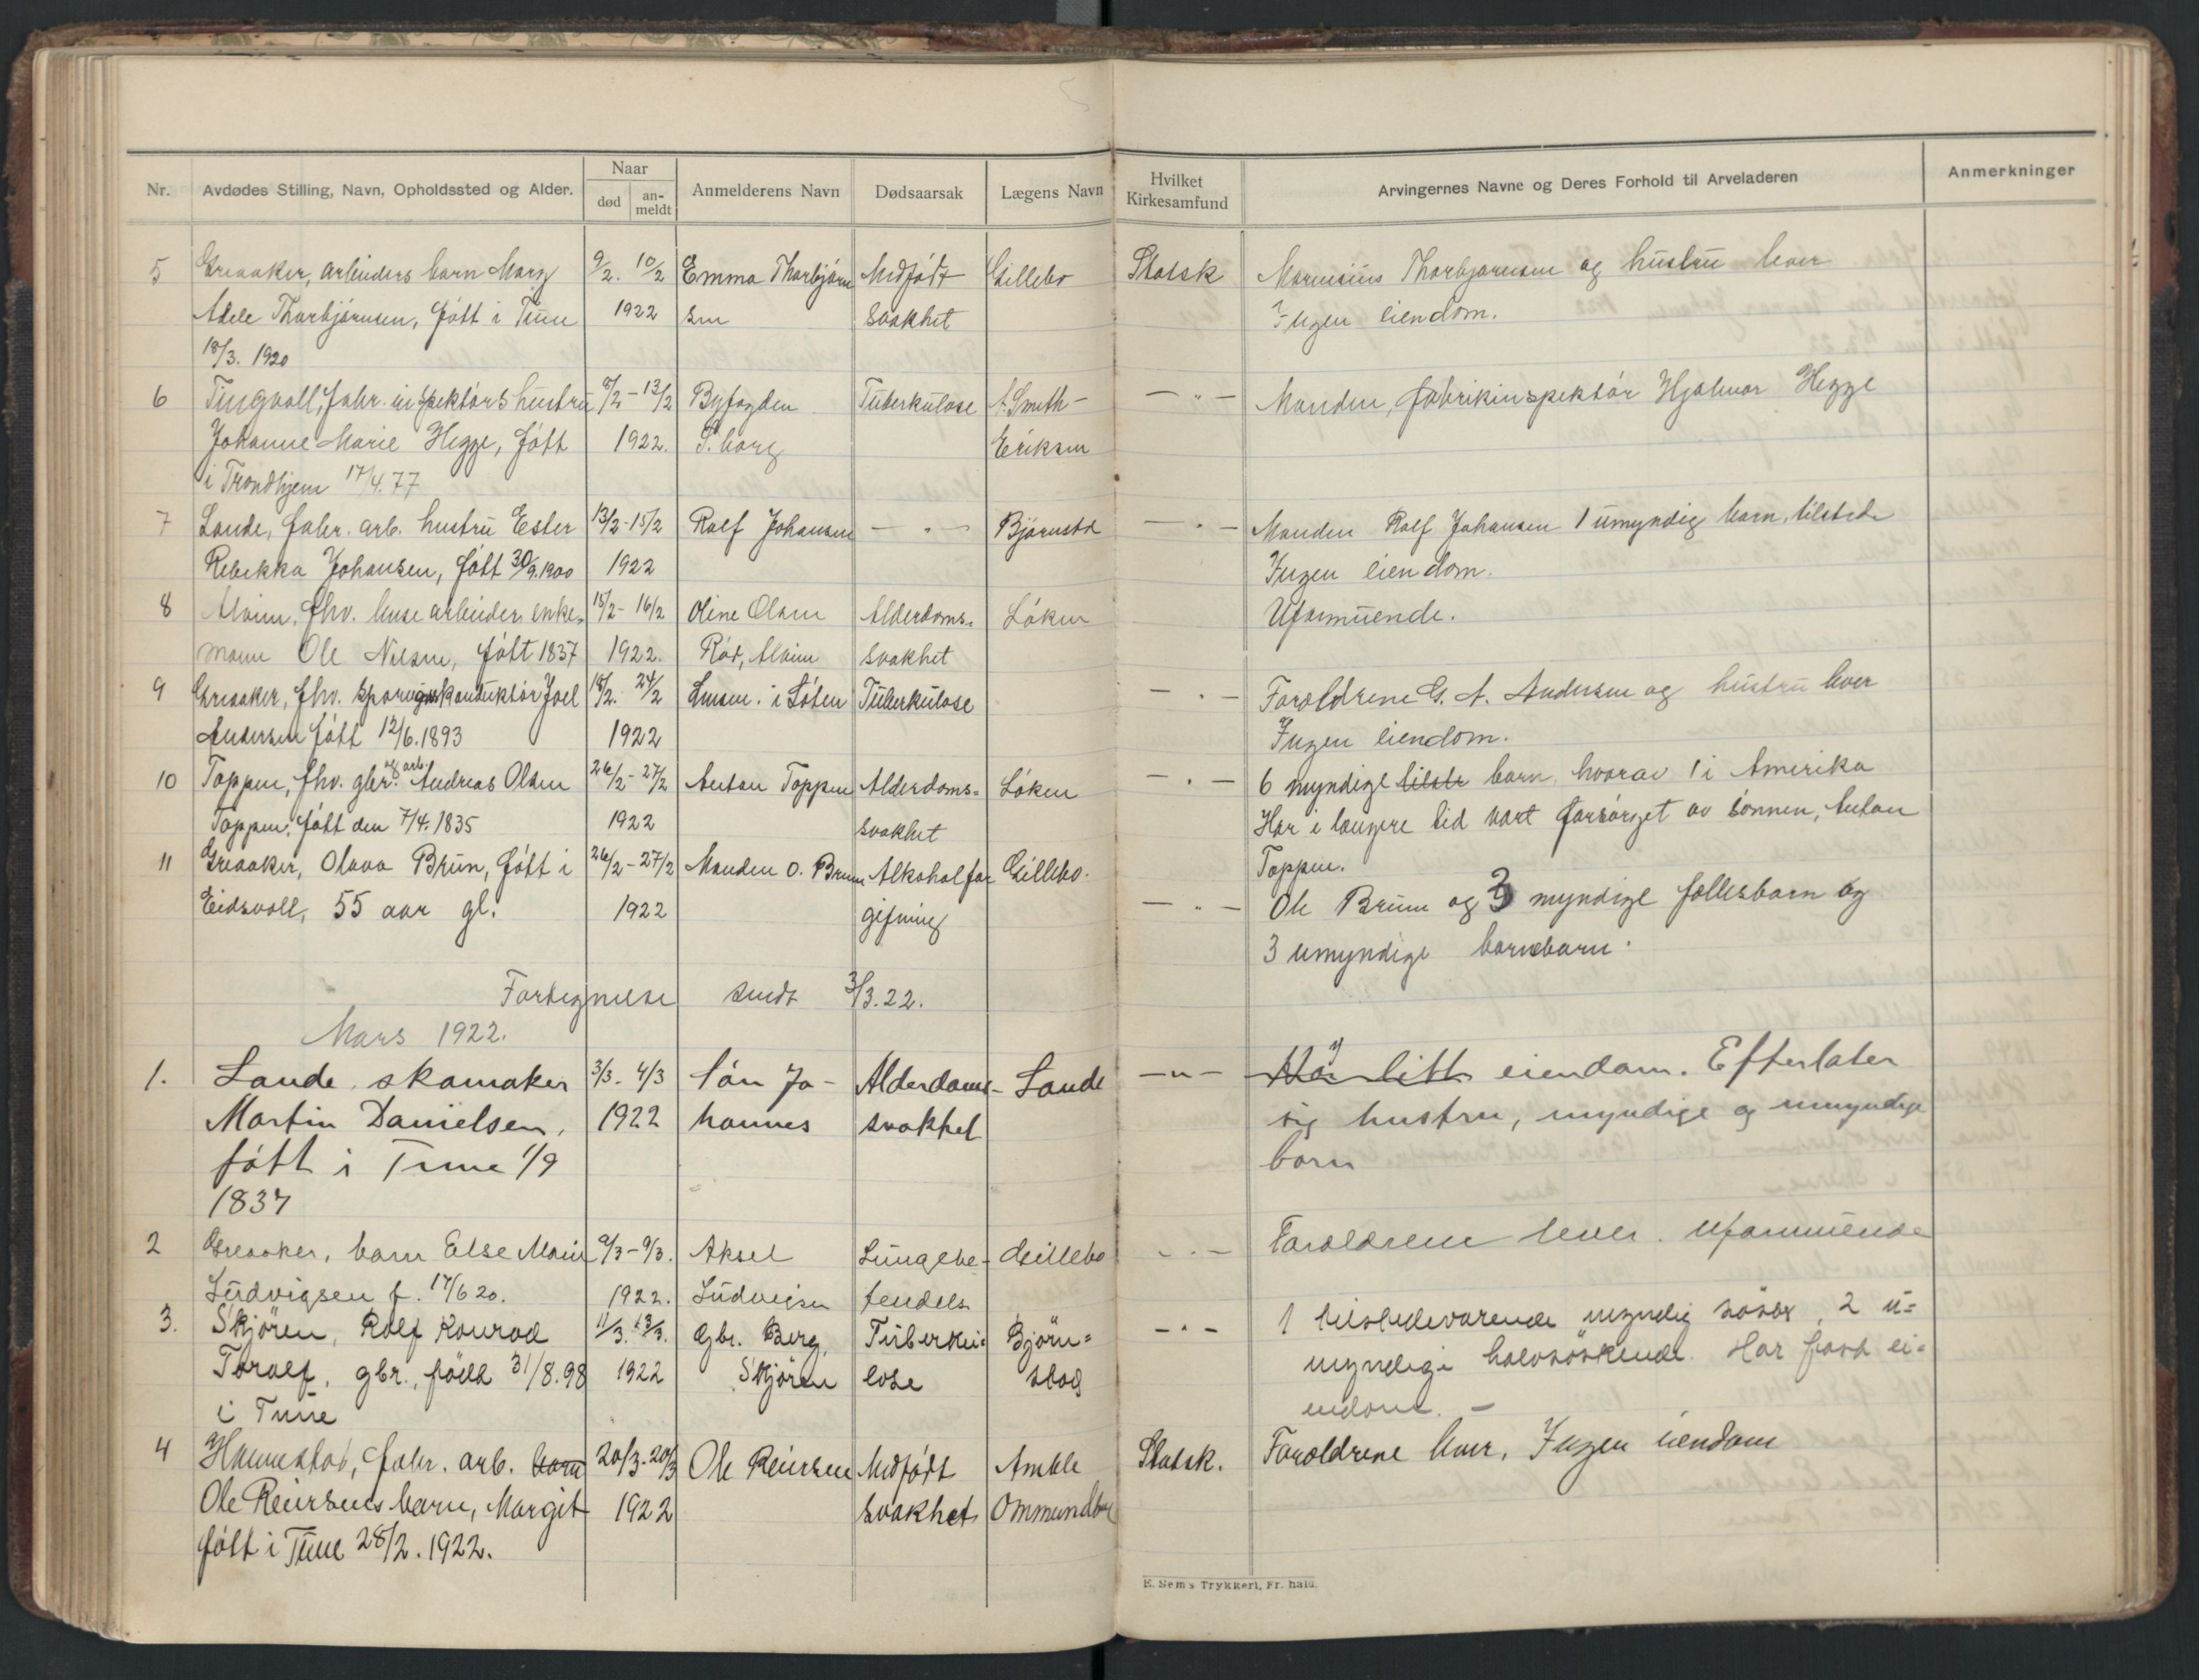 Nr. Avdødes Stilling, Navn, Opholdssted og Alder. Naar død an-meldt Anmelderens Navn Dødsaarsak Lægens Navn Hvilket Kirkesamfund Arvingernes Navne og Deres Forhold til Arveladeren Anmerkninger
5 Greaaker, arbeiders barn Mary 9/2. 10/2 Emma Thorbjørn Medfødt Gillebo Statsk Thorbjørnsen og hustru lever
Adele Thorbjørnsen, født i Tune 1922 sen svakhet Ingen eiendom.
18/3. 1920
6 Tingvoll, fabr. inspektørs hustru 8/2 - 13/2 Byfogden Tuberkulose A. Smith- — " — Manden, fabrikinspektør Hjalmar Hegge
Johanne Marie Hegge, født 1922. S.borg Eriksen
i Trondhjem 17/4.77
7 Lande, fabr. arb. hustru Ester 13/2 - 15/2 Rolf Johansen — " — Bjørnstd — " — Manden Rolf Johansen 1 umyndig barn, tilstede
Rebekka Johansen, født 30/9.1900 1922 Ingen eiendom.
8 Alvim, fhv. arbeider, enke- 15/2 - 16/2 Oline Olsen Alderdoms- Løken Uformuende.
mann Ole Nilsen, født 1837 1922. Rød, Alvim svakhet
9 Greaaker, fhv. sporveiskonduktør Joel 18/2. 24/2 Lensm. i Løten Tuberkulose — " — Forældrene G. A. Andersen og hustru lever
Andersen født 12/6.1893 1922 Ingen eiendom.
10 Toppen, fhv. gbr. og arb. Andreas Olsen 26/2 - 27/2 Anton Toppen Alderdoms- Løken — " — 6 myndige tilste barn, hvorav 1 i Amerika
Toppen, født den 7/4. 1835 1922 svakhet Har i længere tid vært forsørget av sønnen, Anton
Toppen.
11 Greaaker, Olava Brun, født i 26/2 - 27/2 Manden O. Brun Alkoholfor Gillebo. — " — Ole Brun og 3 myndige fællesbarn og
Eidsvoll, 55 aar gl. 1922 giftning 3 umyndige barnebarn.
Fortegnelse sendt 3/3.22.
Mars 1922.
1. Lande, skomaker 3/3. 4/3 Sön Jo- Alderdoms- Lande — " — Har litt eiendom. Efterlater
Martin Danielsen, 1922 hannes svakhet sig hustru, myndige og umyndige
født i Tune 1/9 barn
1837
2 Greaaker, barn Else Marie 9/3 - 9/3. Aksel Lungebe- Gillebo — " — Forældrene lever. Uformuende
Ludvigsen f. 17/6 20. 1922. Ludvigsen tendels
3. Skjøren, Rolf Konrad 11/3. 13/3. Gbr. Berg, Tuberku- Bjørn- — " — 1 tilstedeværende myndig søster, 2 u-
Toralf, gbr., född 31/8.98 1922 Skjøren lose stad myndige halvsøskende. Har fast ei-
i Tune endom. —
4 Hannestad, fabr. arb. barn 20/3. 20/3 Ole Reiersen Medfødt Amble Statsk. Forældrene lever. Ingen eiendom
Ole Reiersens barn, Margit 1922 svakhet Ommundsen
født i Tune 28/2. 1922.
E. Sem's Trykkeri, Fr. hald.